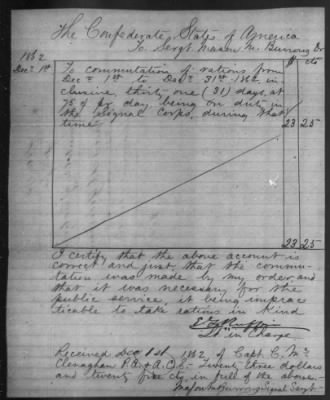 The Confederate States of America
To Sergt. Mason M. Burrows Dr
1862 $ cts
Decr 1st To commutation of rations from
Decr 1st to Decr 31st 1862, in-
clusive, thirty one (31) days, at
75 ¢ pr day, being on duty in
the Signal Corps, during that
time 23 25
23 25
I certify that the above account is
correct and just, that the commu-
tation was made by my order, and
that it was necessary for the
public service, it being imprac-
ticable to take rations in kind
Lt in Charge
Received Dec 1st 1862, of Capt C. Mc
Clenaghan twenty three dollars
and twenty five cts, in full of the above
Signal Sergt